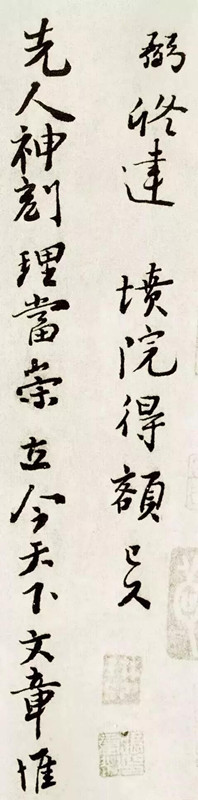 弼修建　墳院得額已久
先人神刻理當崇立今天下文章惟